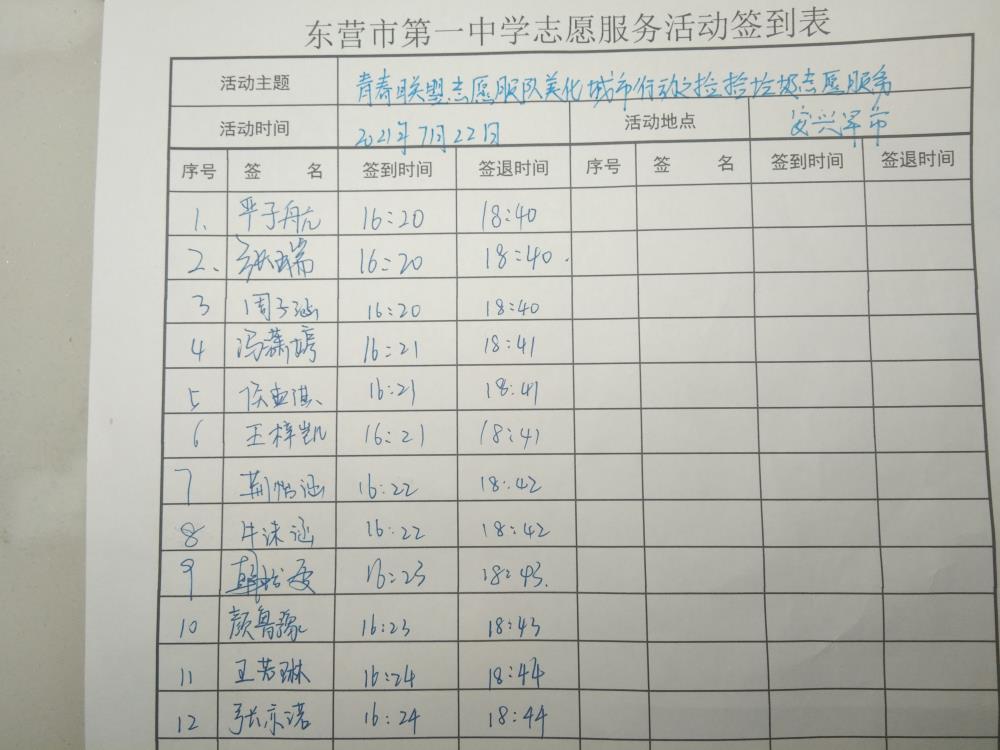 东营市第一中学志愿服务活动签到表
活动主题 青春联盟志愿服队美化城市行动之捡拾垃圾志愿服务
活动时间 2021年7月22日 活动地点 安兴早市
序号 签 名 签到时间 签退时间 序号 签 名 签到时间 签退时间
1. 严子航 16:20 18:40
2、 瑞 16:20 18:40.
3 周子涵 16:20 18:40
4 冯潇婷 16:21 18:41
5 16:21 18:41
6 王梓凯 16:21 18:41
7 荆怡涵 16:22 18:42
8 牛沫涵 16:22 18:42
9 16:23 18:43.
10 颜鲁豫 16:23 18:43
11 王若琳 16:24 18:44
12 张亦诺 16:24 18:44